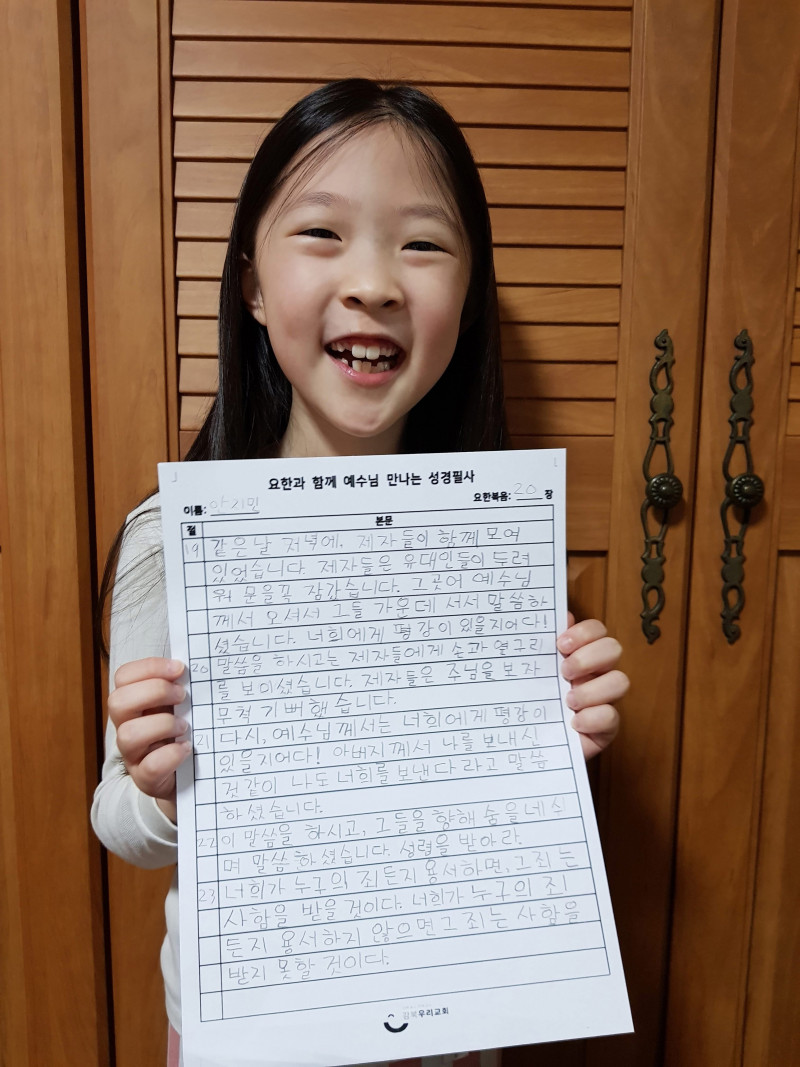 요한과 함께 예수님 만나는 성경필사
이름: 안리민 요한복음: 20 장
절 본문
19 같은 날 저녁에, 제자들이 함께 모여
있었습니다. 제자들은 유대인들이 두려
워 문을 꼭 잠갔습니다. 그곳에 예수님
께서 오셔서 그들 가운데 서서 말씀하
셨습니다. 너희에게 평강이 있을지어다!
20 말씀을 하시고는 제자들에게 손과 옆구리
를 보이셨습니다. 제자들은 주님을 보자
무척 기뻐했습니다.
21 다시, 예수님께서는 너희에게 평강이
있을지어다! 아버지께서 나를 보내신
것같이 나도 너희를 보낸다 라고 말씀
하셨습니다.
22 이 말씀을 하시고, 그들을 향해 숨을 내쉬
며 말씀하셨습니다. 성령을 받아라.
23 너희가 누구의 죄든지 용서하면, 그 죄는
사함을 받을 것이다. 너희가 누구의 죄
든지 용서하지 않으면 그 죄는 사함을
받지 못할 것이다.
우리교회